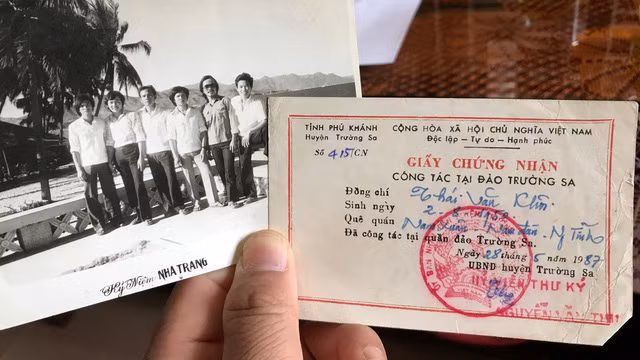 Kỷ Niệm NHATRANG
TỈNH PHÚ KHÁNH
Huyện Trường Sa
Số 415/CN
CỘNG HÒA XÃ HỘI CHỦ NGHĨA VIỆT NAM
Độc lập — Tự do — Hạnh phúc
GIẤY CHỨNG NHẬN
CÔNG TÁC TẠI ĐẢO TRƯỜNG SA
Đồng chí Thái Văn
Sinh ngày 2-5-
Quê quán Nam - Nam đàn - Nghệ Tĩnh
Đã công tác tại quần đảo Trường Sa.
Ngày 28 tháng 5 năm 1987
UBND huyện Trường Sa
ỦY VIÊN THƯ KÝ
NGUYỄN VĂN